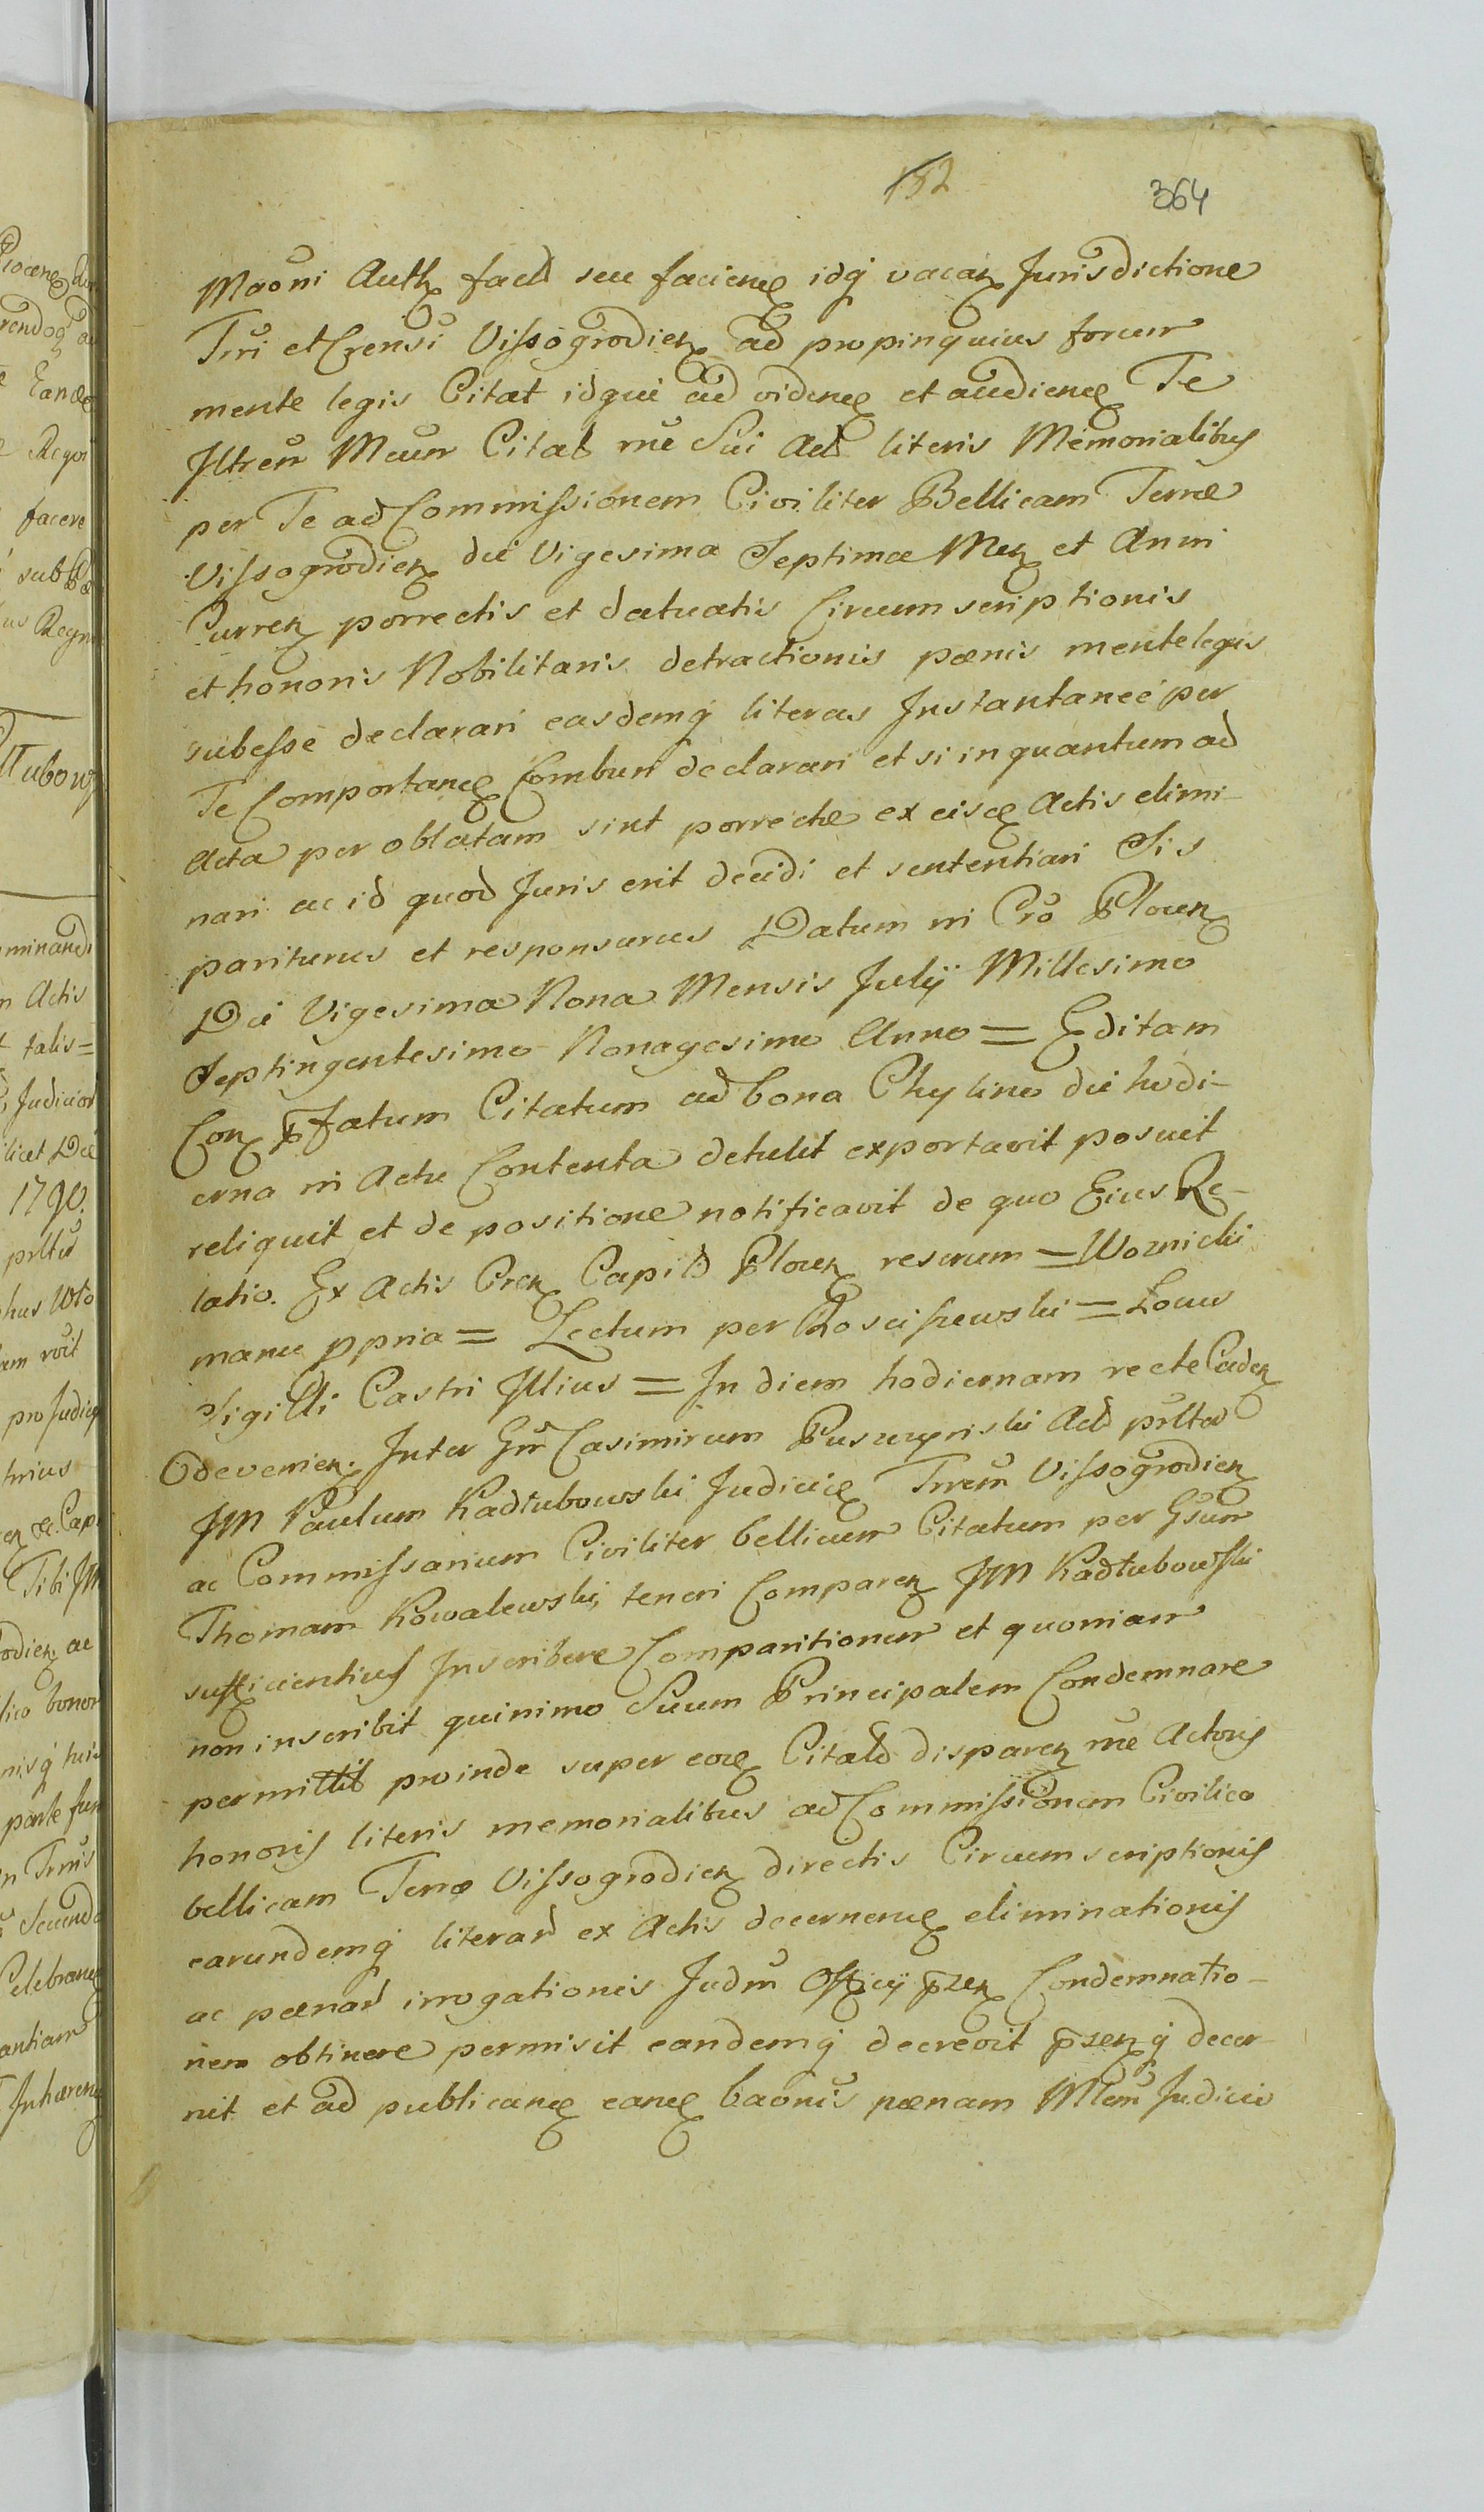 152
364
Maoni Auth facti seu facien idq vacan Jurisdictione
Trri et Crensi Vissogrodien ad propinquius forum
mente legis Citat idque ad viden et audien Te
Illrem Meum Citat rne Sui Act literis Memorialibus
per Te ad Commissionem Civiliter Bellicam Terræ
Vissogrodien die Vigesima Septima Men et Anni
Curren porrectis et datuatis Circumscriptionis
et honoris Nobilitaris detractionis pænis mente legis
subesse declarari easdemq literas Instantanee per
Te Comportan Comburi declarari et si in quantum ad
Acta per oblatam sint porrectæ ex eisd Actis elimi-
nari ac id quod Juris erit decidi et sententiari Sis
pariturus et responsurus Datum in Cro Plocen
Die Vigesima Nona Mensis Julij Millesimo
Septingentesimo Nonagesimo Anno = Editam
Con pfatum Citatum ad bona Chylino die hodi-
erna in Actu Contenta detulit exportavit posuit
reliquit et de positione notificavit de quo Eius Re-
latio. Ex Actis Cren Capit Plocen rescrum = Woznicki
manu ppria = Lectum per Rosciszewski = Locus
Sigilli Castri Illius = In diem hodiernam recte Caden
devenien. Inter Gm Casimirum Puszczynski Act pretter
JM Paulum Kadłubowski Judicie Trrem Vissogrodien
ac Commissarium Civiliter bellicum Citatum per Gsum
Thomam Kowalewski, teneri Comparen JM Kadłubowski
sufficientius Inscribere Comparitionem et quoniam
non inscribit quinimo Suum Principalem Condemnare
permittit proinde super eod Citato disparen rne Actoris
honoris literis memorialibus ad Commissionem Civilico
bellicam Terræ Vissogrodien directis Circumscriptionis
earundemq literar ex Actis decernen eliminationis
ac pænar irrogationis Judm Officij pzen Condemnatio-
nem obtinere permisit eandemq decrevit pzenq decer-
nit et ad publican eand baonis pænam Mlem Judicio